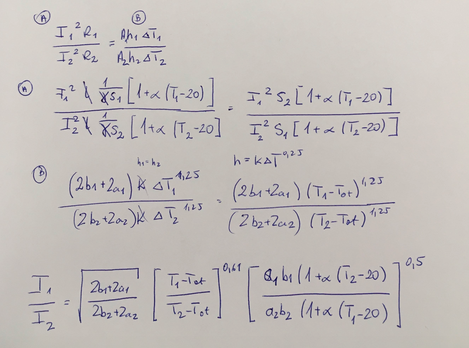 A B
I₁² R₁ / I₂² R₂ = A₁h₁ΔT₁ / A₂h₂ΔT₂
A I₁² L 1/γS₁ [1+α (T₁-20)] / I₂² L 1/γS₂ [1+α (T₂-20)] = I₁² S₂ [1+α (T₁-20)] / I₂² S₁ [1+α (T₂-20)]
h₁=h₂ h = kΔT^0,25
B (2b₁+2a₁) k ΔT₁^1,25 / (2b₂+2a₂) k ΔT₂^1,25 = (2b₁+2a₁) (T₁-Tot)^1,25 / (2b₂+2a₂) (T₂-Tot)^1,25
I₁ / I₂ = √(2b₁+2a₁ / 2b₂+2a₂) [T₁-Tot / T₂-Tot]^0,61 [a₁b₁ (1+α (T₂-20) / a₂b₂ (1+α (T₁-20)]^0,5